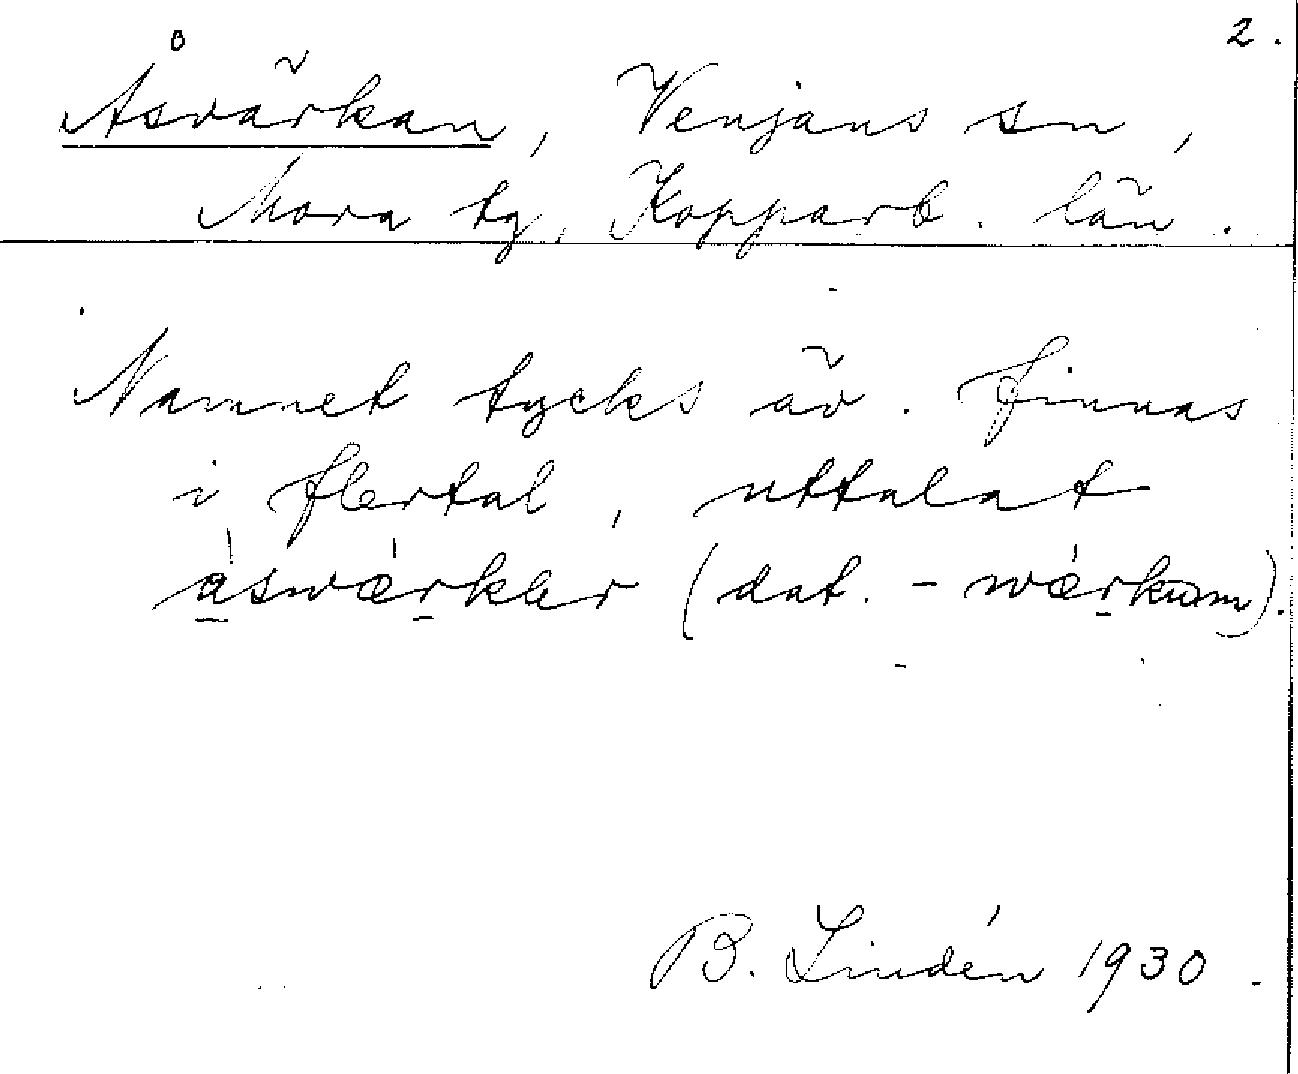 2.
Åsvärkan, Venjans sn,
Mora tg, Kopparb. län.
Namnet tycks äv. finnas
i flertal, uttalat
a̱swærkär (dat. - wærkum).
B. Lindén 1930.